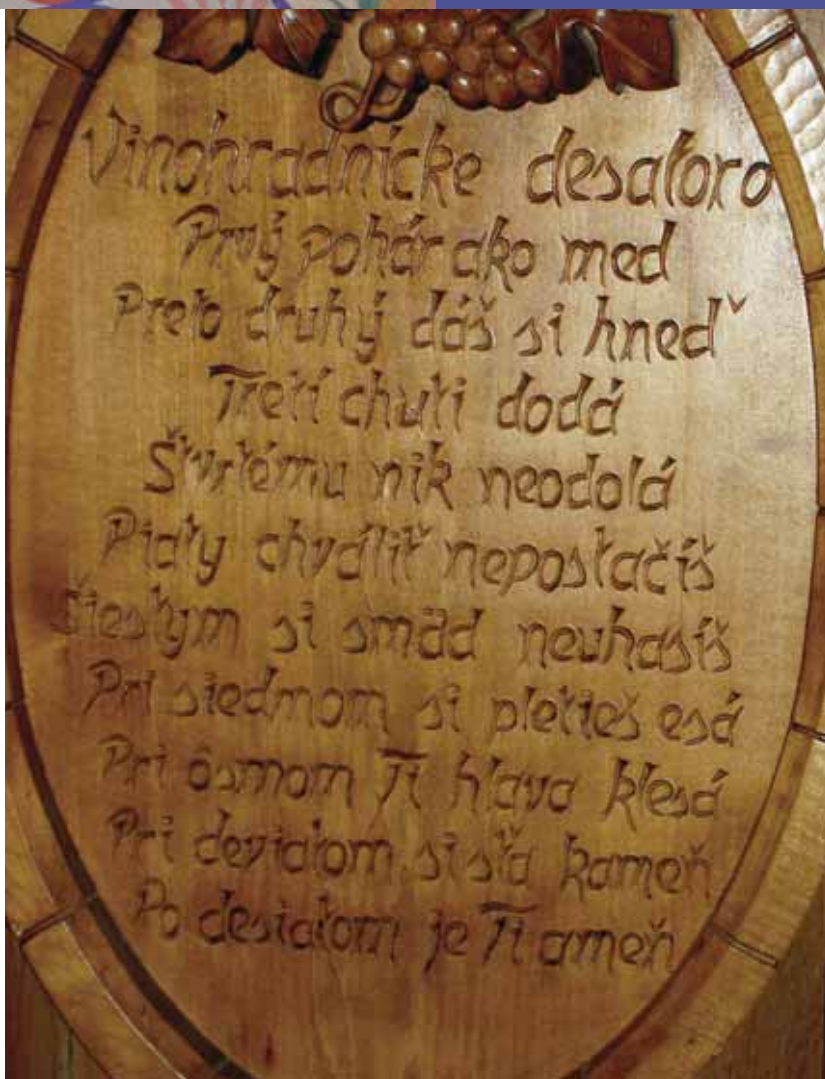 Vinohradnícke desatoro
Prvý pohár ako med
Preto druhý dáš si hneď
Tretí chuti dodá
Štvrtému nik neodolá
Piaty chváliť nepostačíš
Šiestym si smäd neuhasíš
Pri siedmom si pletieš esá
Pri ôsmom Ti hlava klesá
Pri deviatom si sťa kameň
Po desiatom je Ti ameň